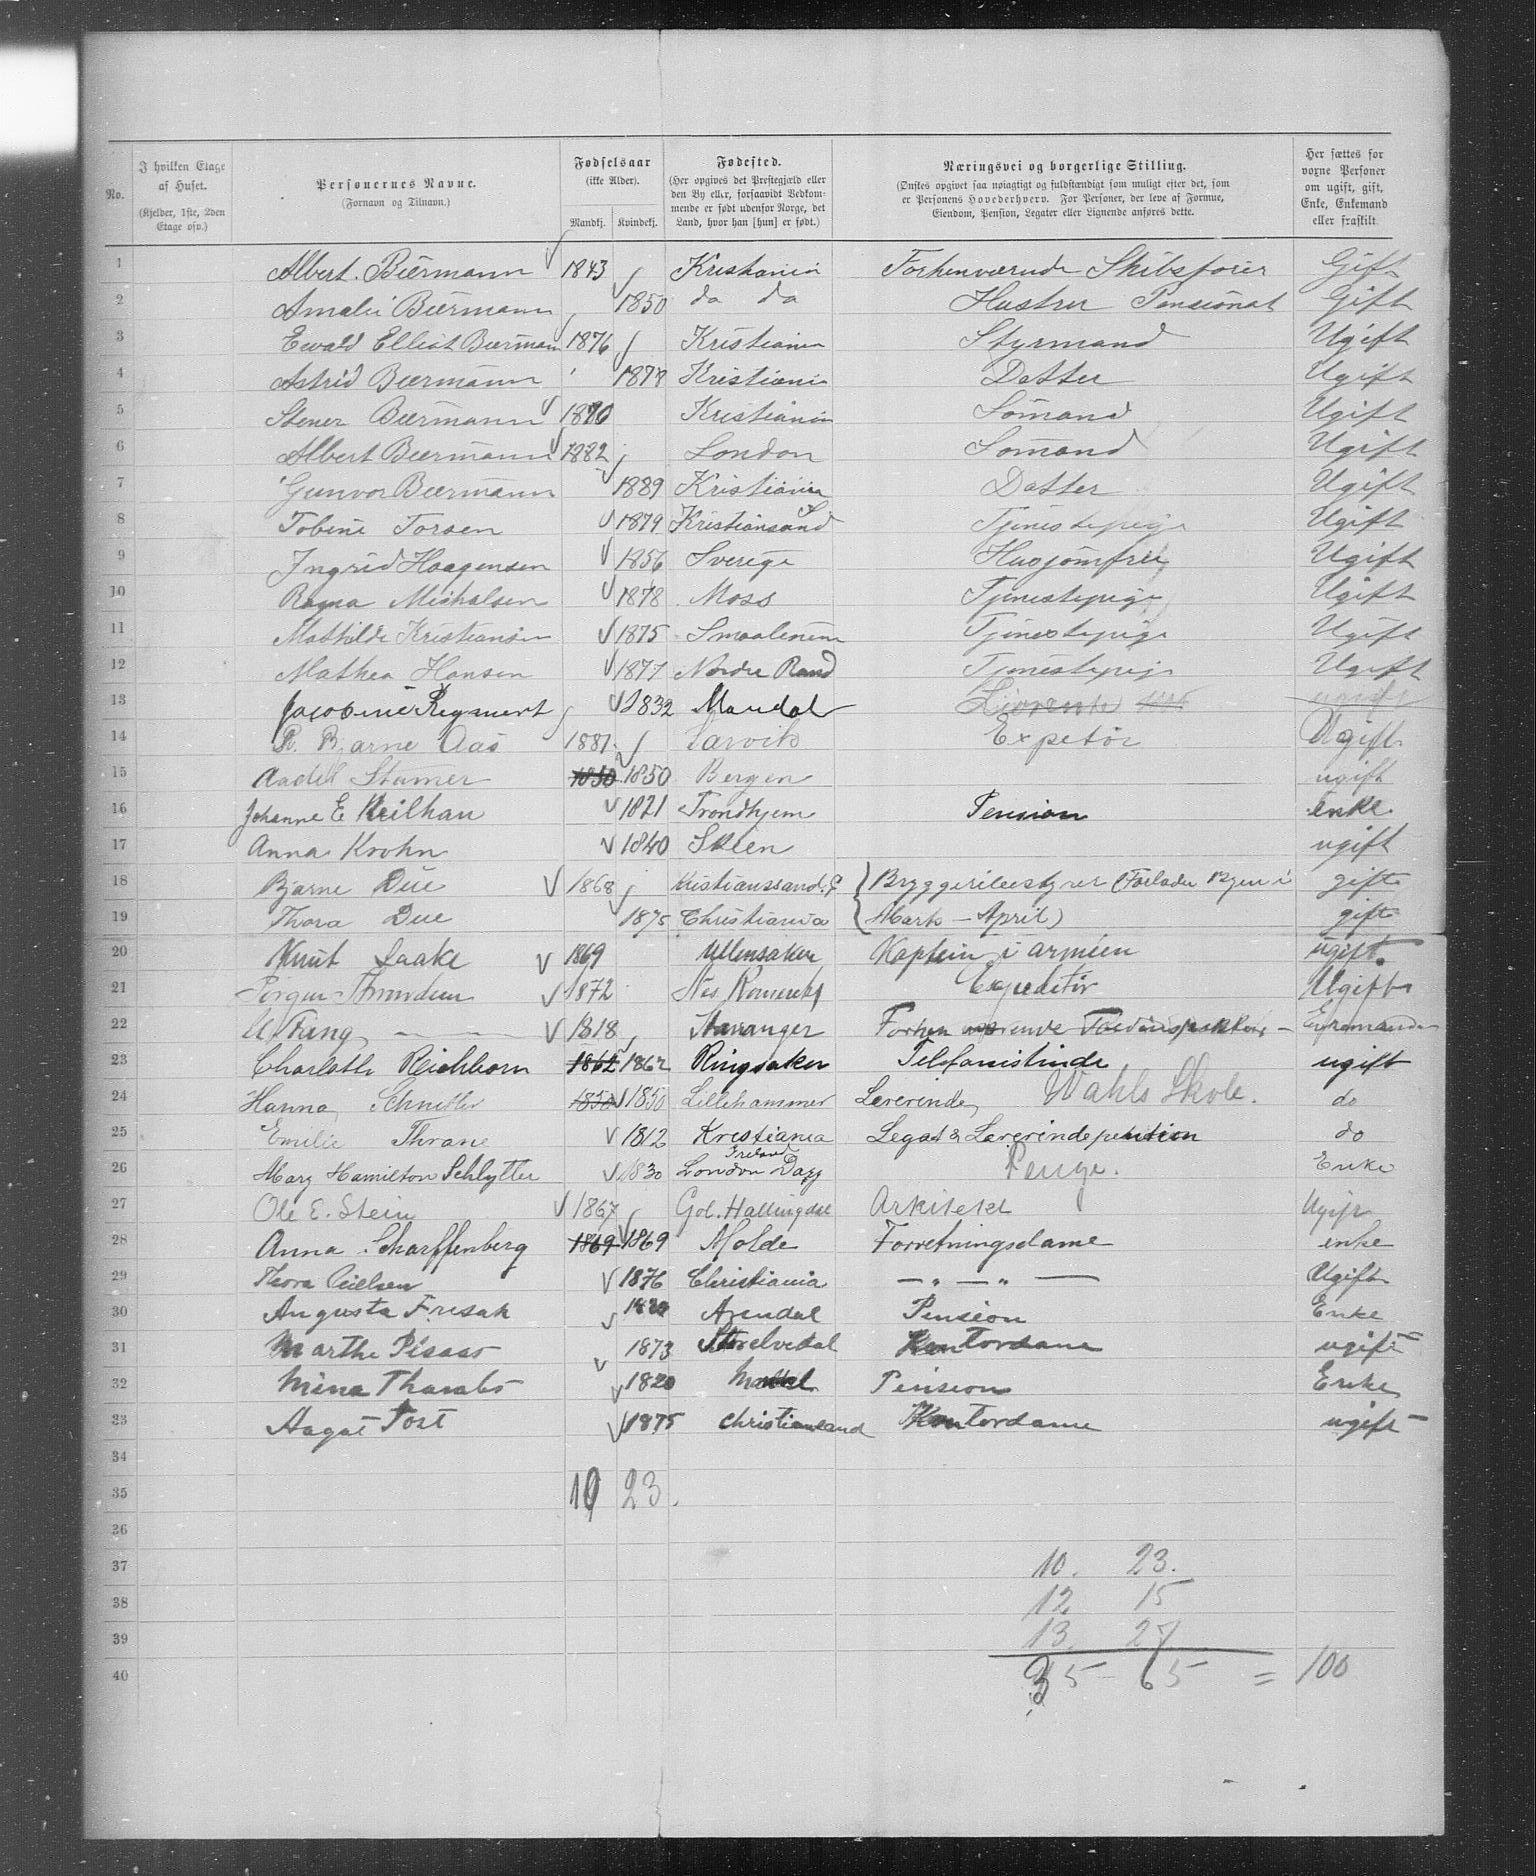 No.
I hvilken Etage af Huset.
(Kjelder, 1ste, 2den Etage osv.)
Personernes Navne.
(Fornavn og Tilnavn.)
Fødselsaar
(ikke Alder).
Mandkj. Kvindekj.
Fødested.
(Her opgives det Prestegjæld eller den By eller, forsaavidt Vedkommende er født udenfor Norge, det Land, hvor han [hun] er født.)
Næringsvei og borgerlige Stilling.
(Ønskes opgivet saa nøiagtigt og fuldstændigt som muligt efter det, som er Personens Hovederhverv. For Personer, der leve af Formue, Eiendom, Pension, Legater eller Lignende anføres dette.
Her sættes for voxne Personer om ugift, gift, Enke, Enkemand eller fraskilt
1 Albert. Biermann 1843 Kristiania Forhenværende Skibsfører Gift
2 Amalie Biermann 1850 do do Hustru Pensionat Gift
3 Ewald Elliot Biermann 1876 Kristiania Styrmand Ugift
4 Astrid Biermann 1878 Kristiania Datter Ugift
5 Stener Biermann 1870 Kristiania Sømand Ugift
6 Albert Biermann 1882 London Sømand Ugift
7 Gunvor Biermann 1889 Kristiania Datter Ugift
8 Tobine Torsen 1879 Kristiansand S Tjenestepige Ugift
9 Ingrid Haagensen 1856 Sverige Husjomfru Ugift
10 Ragna Michalsen 1878 Moss Tjenestepige Ugift
11 Mathilde Kristiansen 1875 Smaalenene Tjenestepige Ugift
12 Mathea Hansen 1877 Nordre Rand Tjenestepige Ugift
13 Jacobine Regmert 1832 Mandal Livrente ugift
14 R. Bjarne Aas 1881 Larvik Expetør Ugift
15 Stamer 1850 1850 Bergen ugift
16 Johanne E Keilhau 1821 Trondhjem Pension enke
17 Anna Krohn 1840 Skien ugift
18 Bjarne Due 1868 Kristianssand. Bryggeribestyrer (Forlader Byen i gift
19 Thora Due 1875 Christiania Marts - April) gift
20 Knut Laake 1869 Ullensaker Kaptein i armeen ugift.
21 Jørgen Throndsen 1872 Nes Romerike Expeditør Ugift
22 1818 Stavanger Forhen værende Enkemand
23 Charlotte Reichborn 1862 1862 Ringsaker Telefonistinde ugift
24 Hanna Schnitler 1850 1850 Lillehammer Lærerinde, Wahls Skole. do
25 Emilie Thrane 1812 Kristiania Legat & Lærerindepension do
26 Mary Hamilton Schlytter 1830 London Irelands Penge. Enke
27 Ole E. Stein 1867 Gol. Hallingdal Arkitekt Ugift
28 Anna Scharffenberg 1869 1869 Molde Forretningsdame enke
29 Thora Nielsen 1876 Christiania — " — " — Ugift
30 Augusta Frisak Arendal Pension Enke
31 Marthe Pisaas 1873 Storelvedal Kontordame ugift
32 Mina 1820 Pension Enke
33 Aagot Tost 1875 Christiansand Kontordame ugift
34
35 10 23.
36
37 10. 23.
38 12 15
39 13. 27
40 35 - 65 = 100